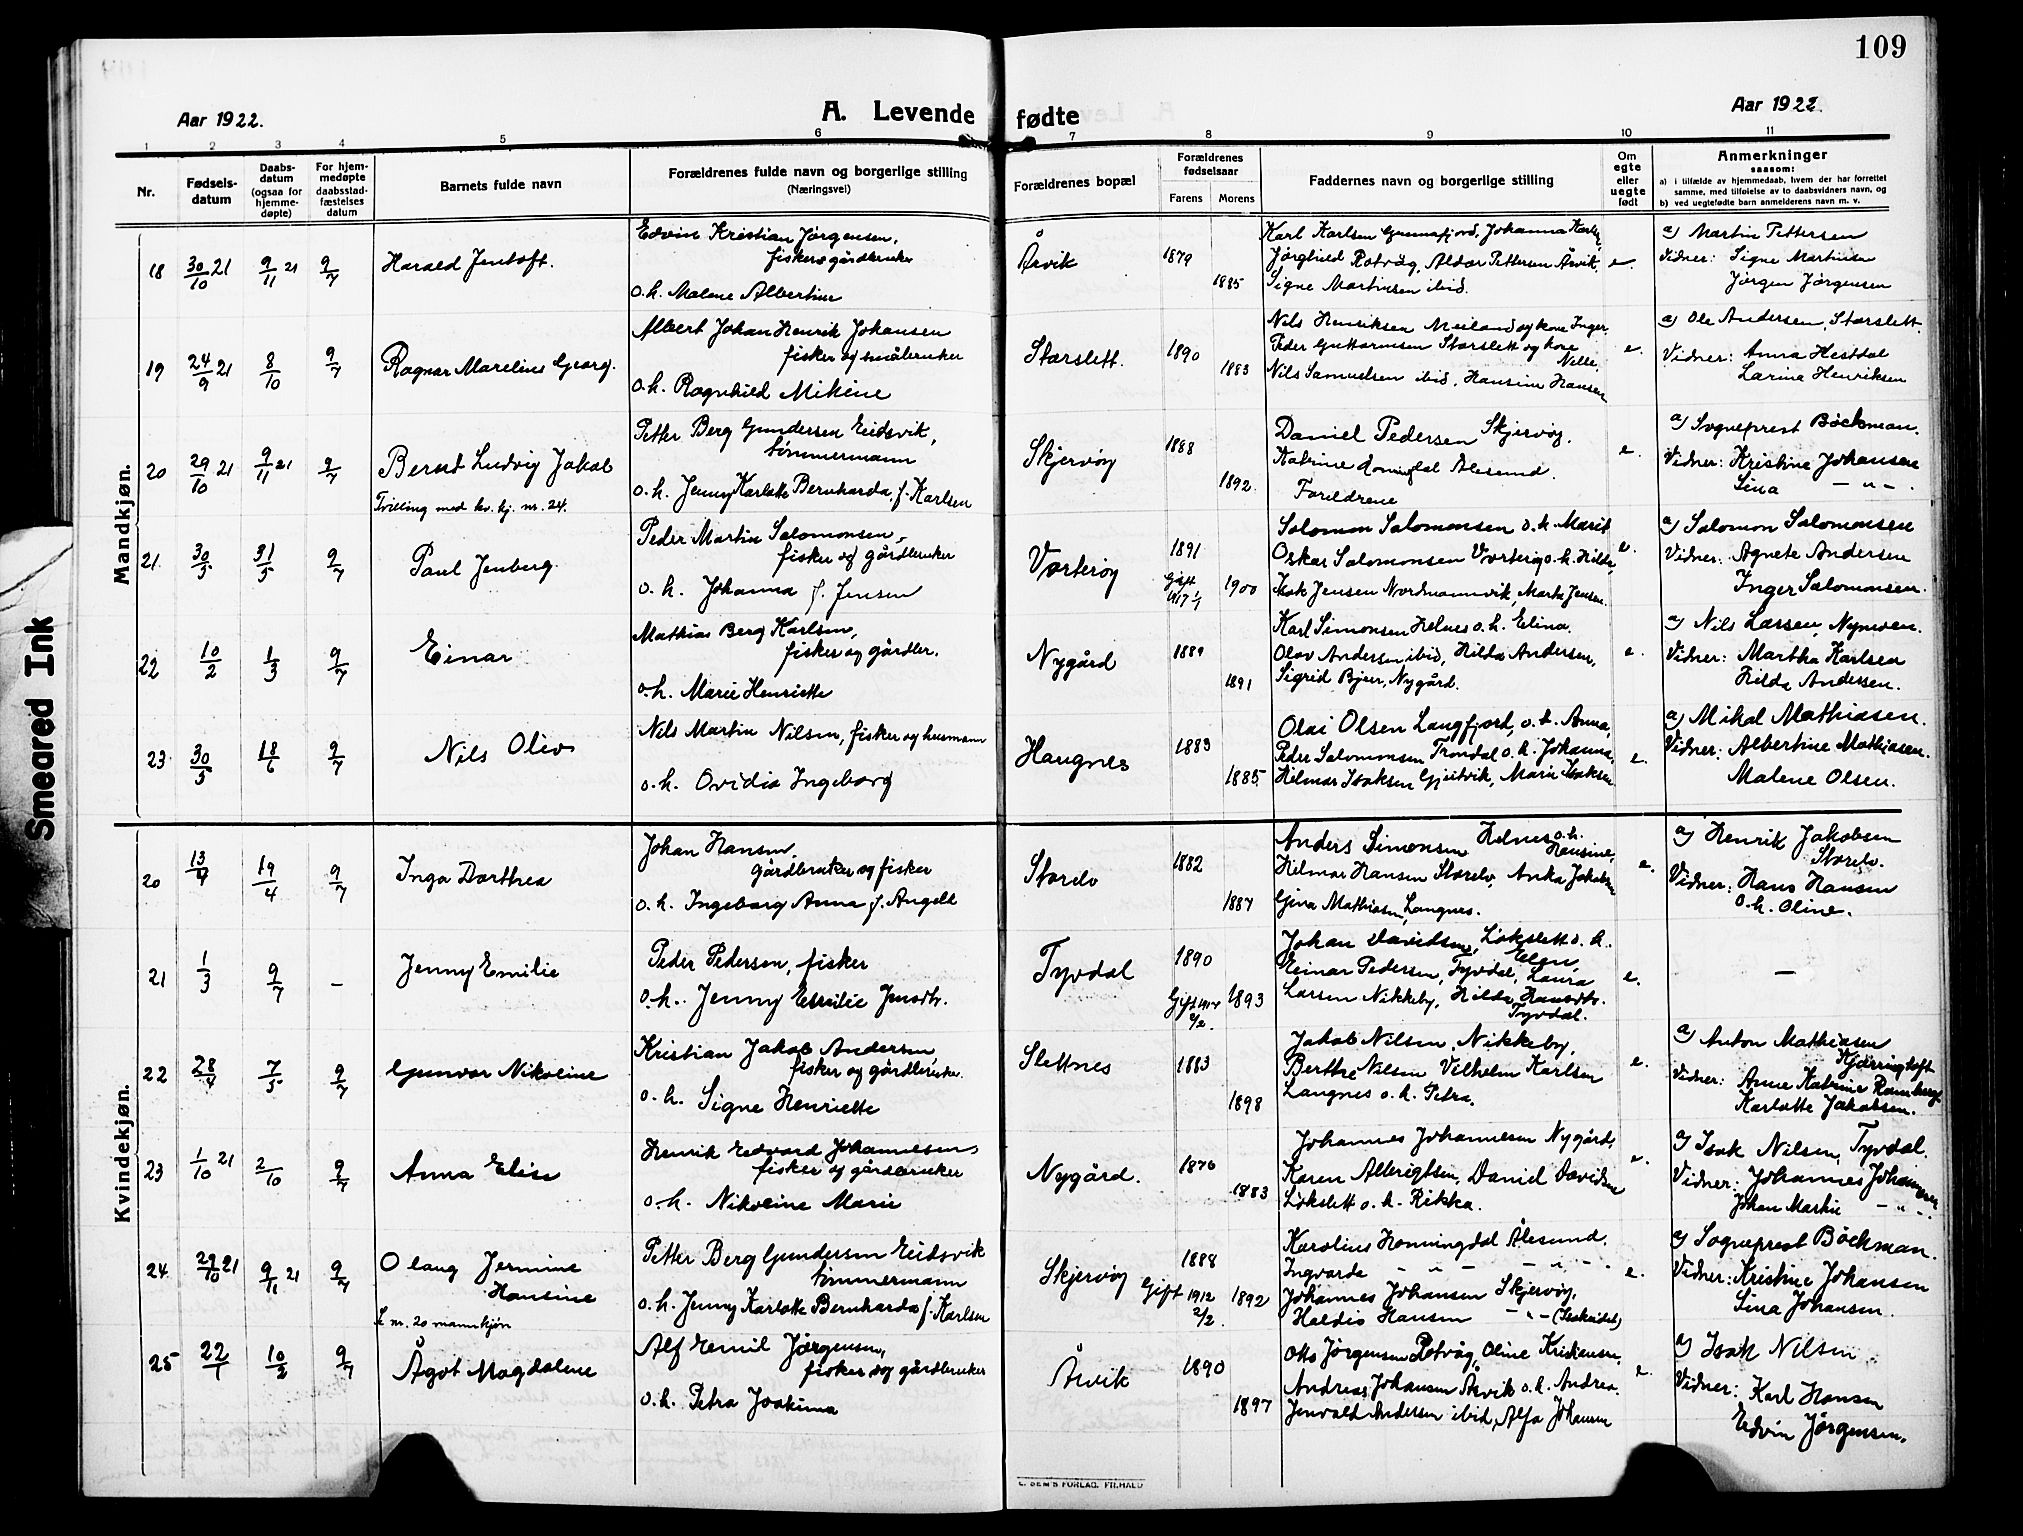 109
Aar 1922.
A. Levende
fødte
Aar 1922.
1 2 3 4 5 6 7 8 9 10 11
Nr.
Fødsels-
datum
Daabs-
datum
(ogsaa for
hjemme-
døpte)
For hjem-
medøpte
daabsstad-
fæstelses
datum
Barnets fulde navn
Forældrenes fulde navn og borgerlige stilling
(Næringsvei)
Forældrenes bopæl
Forældrenes
fødselsaar
Farens Morens
Faddernes navn og borgerlige stilling
Om
egte
eller
uegte
født
Anmerkninger
saasom:
a) i tilfælde av hjemmedaab, hvem der har forrettet
samme, med tilføielse av to daabsvidners navn, og
b) ved uegtefødte barn anmelderens navn m. v.
Mandkjøn.
18 30/10 21 9/11 21 9/7 Harald Jentoft.
Edvin Kristian Jørgensen,
fisker o gårdbruker
o.h. Malene Albertine
Årvik
1879
1885
Jørghild Rotvåg, Aldor Pettersen Årvik,
Signe Martinsen ibid.
e.
a) Martin Pettersen
Vidner: Signe Martinsen
Jørgen Jørgensen
19 24/9 21 8/10 9/7 Ragnar Marelius Georg.
Albert Johan Henrik Johansen
fisker og småbruker
o.h. Ragnhild Mikine
Storslett.
1890
1883
Nils Henriksen Meiland og kone Inger,
Peder Guttormsen Storslett og kone
Nille,
Nils Samuelsen ibid, Hansine Hansen
e.
a) Ole Andersen, Storslett.
Vidner: Anna Hestdal
Larina Henriksen
20 29/10 21 9/11 21 9/7 Bernt Ludvig Jakob
Tvilling med kv. kj. nr. 24.
Petter Berg Gundersen Eidsvik,
tømmermann
o.h. Jenny Karlotte Bernharda, f. Karlsen
Skjervøy
1888
1892.
Daniel Pedersen Skjervøy.
Katrine Honningdal Ålesund.
Foreldrene
e.
a) Sogneprest Bøckman.
Vidner: Kristine Johansen
Lina — " — .
21. 30/5 31/5 9/7 Paul Jenberg.
Peder Martin Salomonsen,
fisker og gårdbruker
o. h. Johanna f. Jensen
Vorterøy
1891
Gift
1917 1/7
1900
Salomon Salomonsen o.h. Marit
Oskar Salomonsen Vorterøy o.h. Hilda,
Isak Jensen Nordmannvik, Marta Jensen.
e.
a) Salomon Salomonsen
Vidner: Agnete Andersen
Inger Salomonsen.
22 10/2 1/3 9/7 Einar
Mathias Berg Karlsen,
fisker og gårdbr.
o.h. Marie Henriette
Nygård
1889
1891
Karl Simonsen Helnes o.h. Elina.
Olav Andersen ibid, Hilda Andersen,
Sigrid Bjer, Nygård.
e.
a) Nils Larsen, Nymoen.
Vidner: Martha Karlsen
Hilda Andersen.
23 30/5 18/6 9/7 Nils Oliv
Nils Martin Nilsen, fisker og husmann
o.h. Ovidia Ingeborg
Haugnes
1883
1885.
Olai Olsen Langfjord, o.h. Anna,
Peder Salomonsen Trondal o.h. Johanna,
Hilmar Isaksen Gjøvik, Marie Isaksen
e.
a) Mikal Mathiasen.
Vidner: Albertine Mathiasen.
Malene Olsen.
Kvindekjøn.
20 13/4 19/4 9/7 Inga Dorthea
Johan Hansen,
gårdbruker og fisker
o.h. Ingeborg Anna f. Angell
Storelv
1882
1887
Anders Simonsen Helnes o.h.
Hansine,
Hilmar Hansen Storelv, Anka Jakobsen
Gina Mathiasen, Langnes.
e.
a) Henrik Jakobsen
Storelv.
Vidner: Hans Hansen
o.h. Oline.
21 1/3 9/7 — Jenny Emilie
Peder Pedersen, fisker
o.h. Jenny Emilie Jensdtr.
Tyvdal
1890
1893
Johan Davidsen, Løkslett o.h.
Elen,
Einar Pedersen, Tyvdal, Laura
Larsen Nikkeby, Hilda Hansdtr.
Tyvdal.
e.
—
22 28/4 7/5 9/7 Gunvor Nikoline
Kristian Jakob Andersen,
fisker og gårdbruker.
o.h. Signe Henriette
Slettnes
1883
1898
Jakob Nilsen, Nikkeby,
Berthe Nilsen Vilhelm Karlsen
Langnes o.h. Petra.
e.
a) Anton Mathiasen
Kjerringtoft
Vidner: Anne Katrine Ramsberg
Karlotte Jakobsen.
23 1/10 21 2/10 9/7 Anna Elise
Henrik Edvard Johannesen,
fisker og gårdbruker
o.h. Nikoline Marie
Nygård.
1876
1883
Johannes Johannesen Nygård,
Karen Albrigtsen, Daniel Davidsen
Løkslett o.h. Rikka.
e.
a) Isak Nilsen, Tyvdal.
Vidner: Johannes Johannesen
Johan Martin — " — .
24. 29/10 21 9/11 21 9/7 Olaug Jermine
Hansine
Petter Berg Gundersen Eidsvik
tømmermann
o.h. Jenny Karlotte Bernharda f. Karlsen
nr. 20 mannkjøn
Skjervøy
1888
Gift 1912
2/2.
1892
Karolius Honningdal Ålesund.
Ingvarda — " — — " — .
Johannes Johansen Skjervøy,
Haldis Hansen — " —
e.
a) Sogneprest Bøckman.
Vidner: Kristine Johansen
Lina Johansen.
25 22/1 10/2 9/7 Ågot Magdalene
Alf Emil Jørgensen,
fisker og gårdbruker
o.h. Petra Joakima
Årvik
1890
1897
Otto Jørgensen Rotvåg, Oline Kristiansen,
Andreas Johansen Årvik o.h. Andrea.
Jenvald Andersen ibid, Alfa Johansen
e.
a) Isak Nilsen
Vidner: Karl Hansen
Edvin Jørgensen.
Smeared Ink